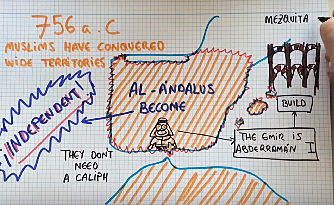 756 a.C
MUSLIMS HAVE CONQUERED
WIDE TERRITORIES
MEZQUITA
AL-ÁNDALUS
BECOME
¡INDEPENDENT!
BUILD
THE EMIR IS
ABDERRAMÁN I
THEY DON'T
NEED
A CALIPH